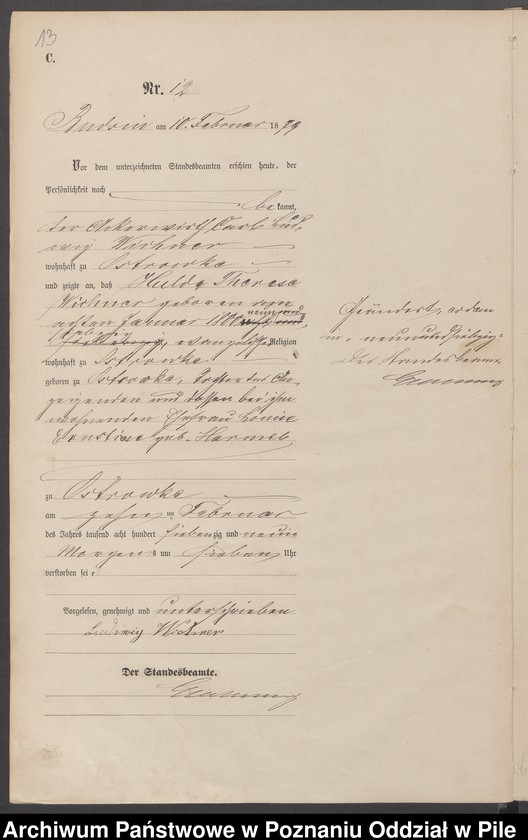 13
C.
Nr. 12
am 10. Februar 1879
Vor dem unterzeichneten Standesbeamten erschien heute, der
Persönlichkeit nach
bekannt,
der Ackerwirth Carl Lud
wig Wichner
wohnhaft zu Ostrowke
und zeigte an, daß Hulda Therese
Wichner geboren am
Januar 18 neun und
siebenzig, evangelischer Religion
wohnhaft zu Ostrowke
geboren zu Ostrowke, Tochter des An-
zeigenden und dessen bei ihm
wohnenden Ehefrau Louise
Ernstine geb. Harmel
zu Ostrowke
am zehn ten Februar
des Jahres tausend acht hundert siebenzig und neun
Morgens um sieben Uhr
verstorben sei.
Vorgelesen, genehmigt und unterschrieben
Ludwig Wichner
Der Standesbeamte.
Geändert, in
neunundsiebzig
Der Standesbeamte
Archiwum Państwowe w Poznaniu Oddział w Pile